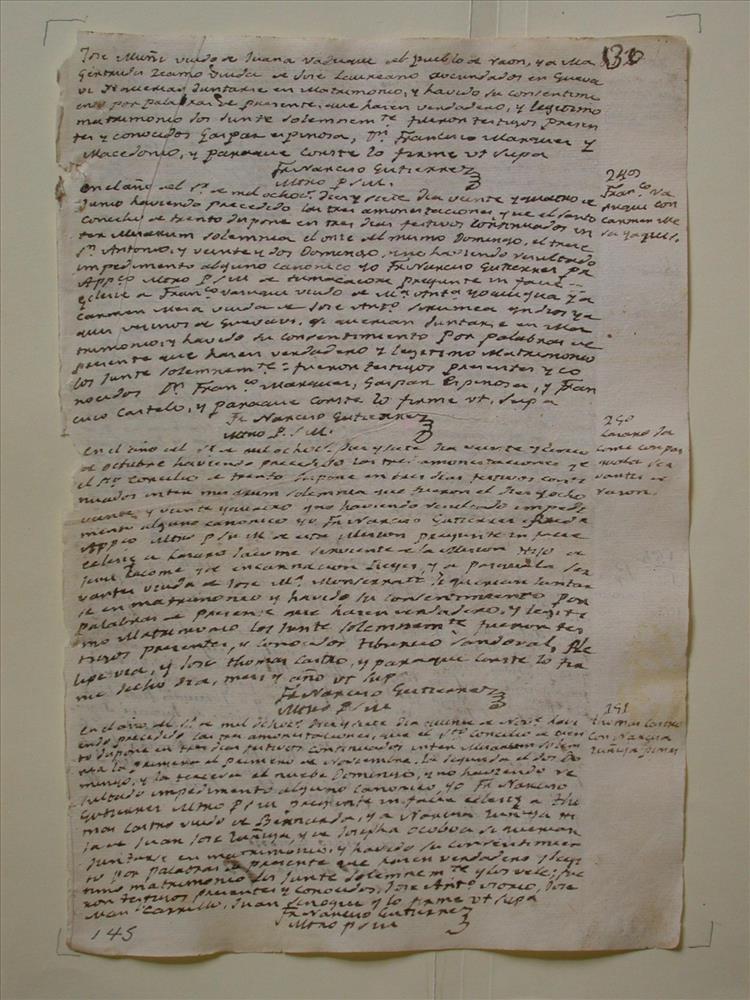 Jose Muñi viudo de Juana Vasquez del pueblo de y a Ma
Gertrudis viuda de Jose Laureano avecindados en Gueva
vi si querian Juntarse en Matrimonio, y havido su consentimi
ento por palabras de presente, que hasen verdadero, y legitimo
matrimonio los Junte solemnemte fueron testigos presen
tes y conocidos Gaspar espinosa, Dn. Francisco Marquez y
Macedonio, y paraque conste lo firme vt supa
Fr. Narciso Gutierrez
Mtro P S M.
En el año del Sr. de mil ochocs. diez y siete dia veinte y quatro de
Junio haviendo precedido las tres amonestaciones, que el santo
Concilio de trento dispone en tres dias festivos continuados in
ter Missarum solemnia el onse del mismo Domingo, el trece
Sn. Antonio, y veinte y dos Domingo, y no haviendo resultado
impedimento alguno canonico yo Fr. Narciso Gutierrez Pr
Appco Mtro P S M de tumacacori pregunte in facie
eclecie a Franco vasquez viudo de Ma. Anta y a
Carmen Mesa viuda de Jose Anto. Yndios ya
quis vecinos de Guevavi, si querian Juntarse en Ma
trimonio; y havido su consentimiento por palabras de
presente que hasen verdadero y legitimo Matrimonio
los Junte solemnemte: fueron testigos presentes y co
nocidos Dn. Franco. Marquez, Gaspar Espinosa, y Fran
cisco Castelo, y paraque conste lo firme vt. supa
Fr. Narciso Gutierrez
Mtro P. S M.
En el año del Sr. de mil ochocs. diez y siete dia veinte y cinco
de octubre haviendo precedido las tres amonestaciones qe
el Sto. Concilio de trento dispone en tres dias festivos conti
nuados inter missarum solemnia que fueron el diez y ocho
veinte y veinte y quatro y no haviendo resultado impedi
mento alguno canonico yo Fr. Narciso Gutierrez
Appco Mtro P S M de esta Mission pregunte in facie
eclecie a Lazaro Jacome sirviente de la Mision Hijo de
Jacome y de encarnacion Reyes, y a Pasquala Ser
vantes viuda de Jose Ma. Monserrate si querian Juntar
se en matrimonio y havido su consentimiento por
palabras de presente que hasen verdadero, y legiti
mo Matrimonio los Junte solemnemte. fueron tes
tigos presentes, y conocidos tiburcio Sandoval, Phe
lipe y Jose thomas Castro, y paraque conste lo fir
me dicho dia, mes, y año vt sup
Fr. Narciso Gutierrez
Mtro P S M
En el año del Sr. de mil ochocs. diez y siete dia quinse de Nove. havi
endo precedido las tres amonestaciones, que el Sto Concilio de tren
to dispone en tres dias festivos continuados inter Missarum solem
nia la primera el primero de Noviembre, la segunda el dos Do
mingo, y la tercera el nueve Domingo, y no haviendo re
sultado impedimento alguno canonico, yo Fr. Narciso
Gutierrez Mtro P S M pregunte in facie eclecie a tho
mas Castro viudo de Bernarda, y a Narcisa Zuñiga hi
ja de Juan Jose Zuñiga, y de Josepha ocoboa si querian
Juntarse en matrimonio; y havido su consentimien
to por palabras de presente que hasen verdadero y legi
timo matrimonio los Junte solemnemte y los vele; fue
ron testigos presentes y conocidos, Jose Anto. Osorio, Jose
Manl. Carrillo, Juan Sinoque y lo firme vt supa
Fr. Narciso Gutierrez
Mtro P S M
249
Franco Va
squez con
Carmen Me
sa yaquis.
250
Lazaro Ja
come con pas
quala Ser
vantes de
razon.
251
thomas Castro
Con Narcisa
Zuñiga
145